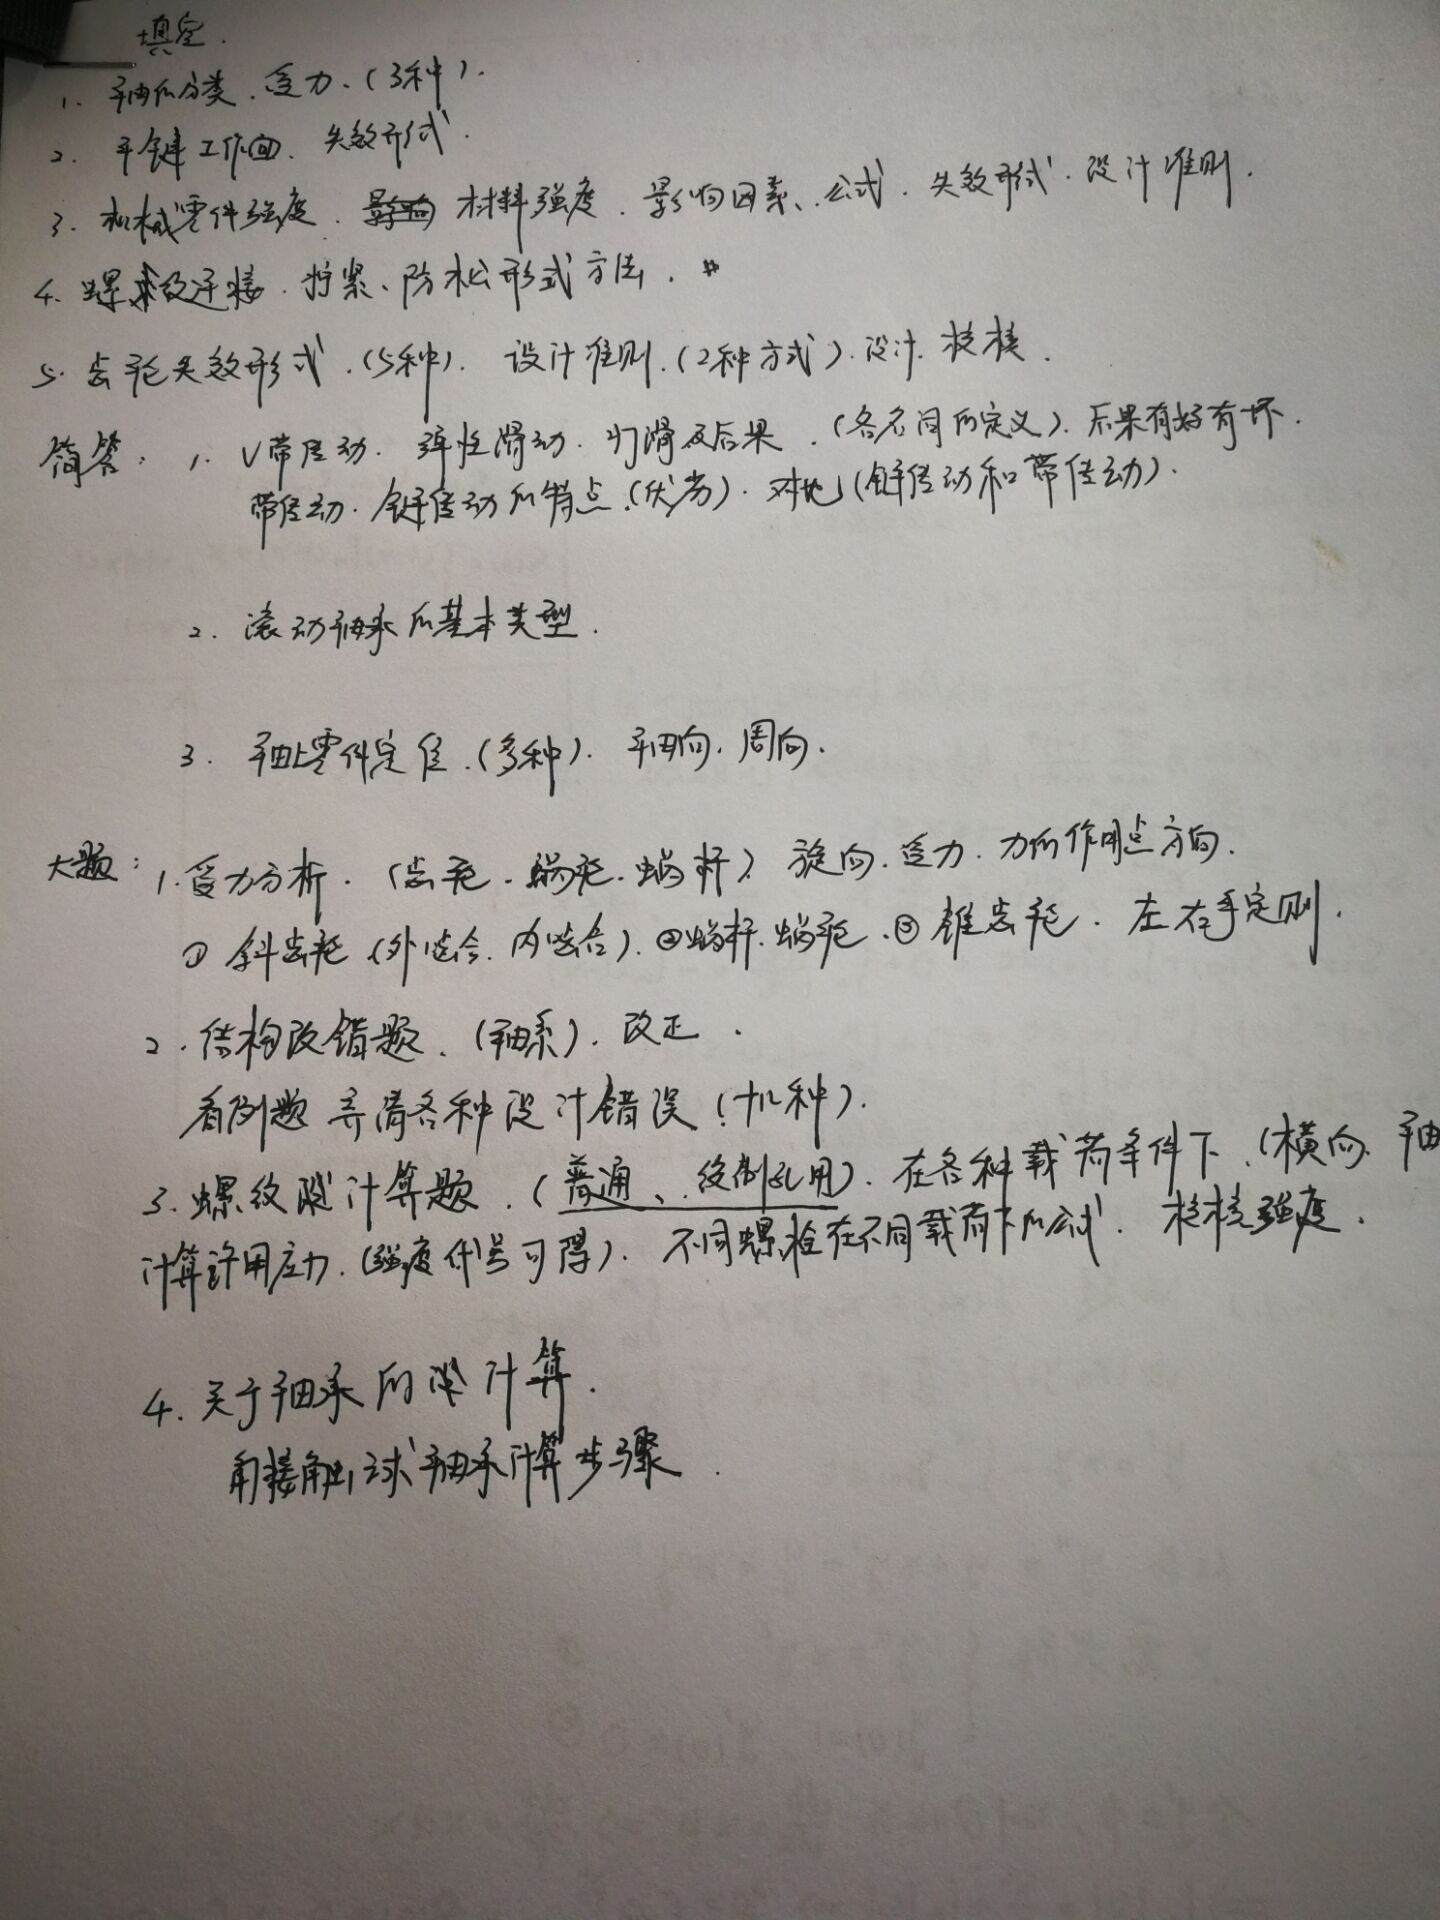 填空.
1. 轴的分类.受力.(3种).
2. 平键工作面. 失效形式.
3. 机械零件强度. 材料强度. 影响因素、公式. 失效形式. 设计准则.
4. 螺纹连接. 拧紧、防松形式方法.
5. 齿轮失效形式.(5种). 设计准则.(2种方式).设计. 校核.
简答: 1. V带传动. 弹性滑动. 打滑及后果.(各名词的定义).后果有好有坏.
带传动. 链传动的特点.(优劣). 对比(链传动和带传动).
2. 滚动轴承的基本类型.
3. 轴上零件定位.(多种). 轴向. 周向.
大题: 1.受力分析. (齿轮.蜗轮.蜗杆). 旋向.受力. 力的作用点方向.
① 斜齿轮(外啮合.内啮合).②蜗杆.蜗轮.③锥齿轮. 左右手定则.
2. 结构改错题. (轴系). 改正.
看例题 弄清各种设计错误(十几种).
3. 螺纹 计算题. (普通、铰制孔用). 在各种载荷条件下.(横向. 轴
计算许用应力.(强度代号可得). 不同螺栓在不同载荷下的公式. 校核强度.
4. 关于轴承的 计算.
角接触球轴承计算步骤.